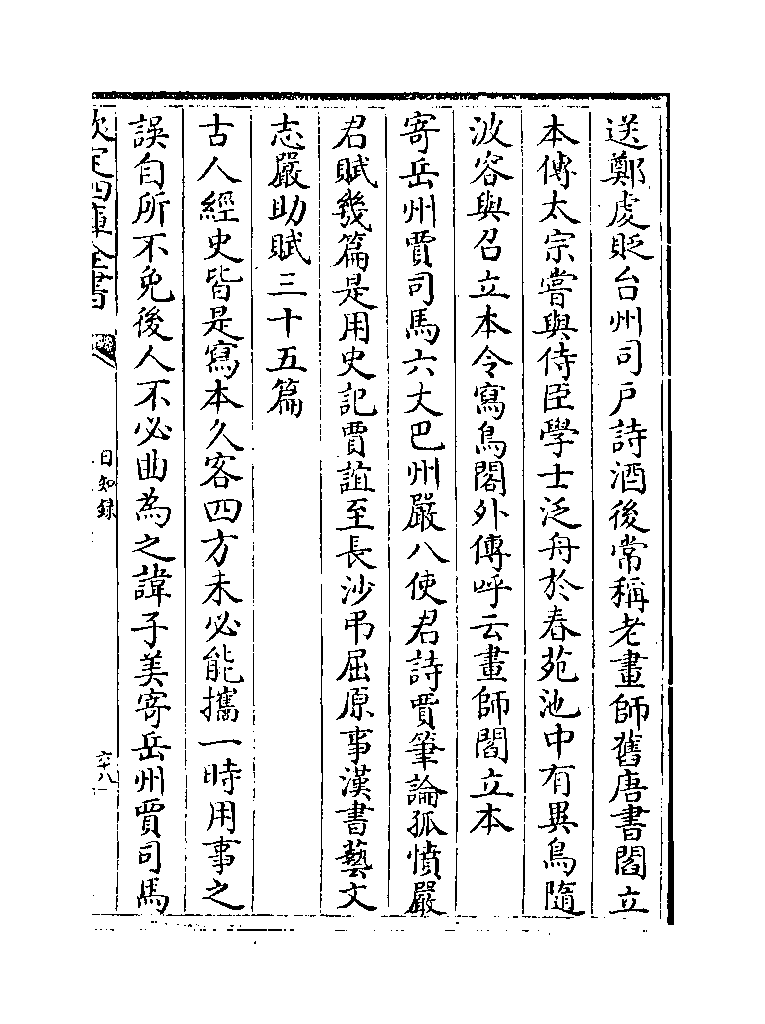 送鄭虔貶台州司戶詩酒後常稱老畫師舊唐書閻立
本傳太宗嘗與侍臣學士泛舟於春苑池中有異鳥隨
波容與召立本令寫鳥閣外傳呼云畫師閻立本
寄岳州賈司馬六丈巴州嚴八使君詩賈筆論孤憤嚴
君賦幾篇是用史記賈誼至長沙弔屈原事漢書藝文
志嚴助賦三十五篇
古人經史皆是寫本久客四方未必能攜一時用事之
誤自所不免後人不必曲為之諱子美寄岳州賈司馬
欽定四庫全書
日知錄
六十八